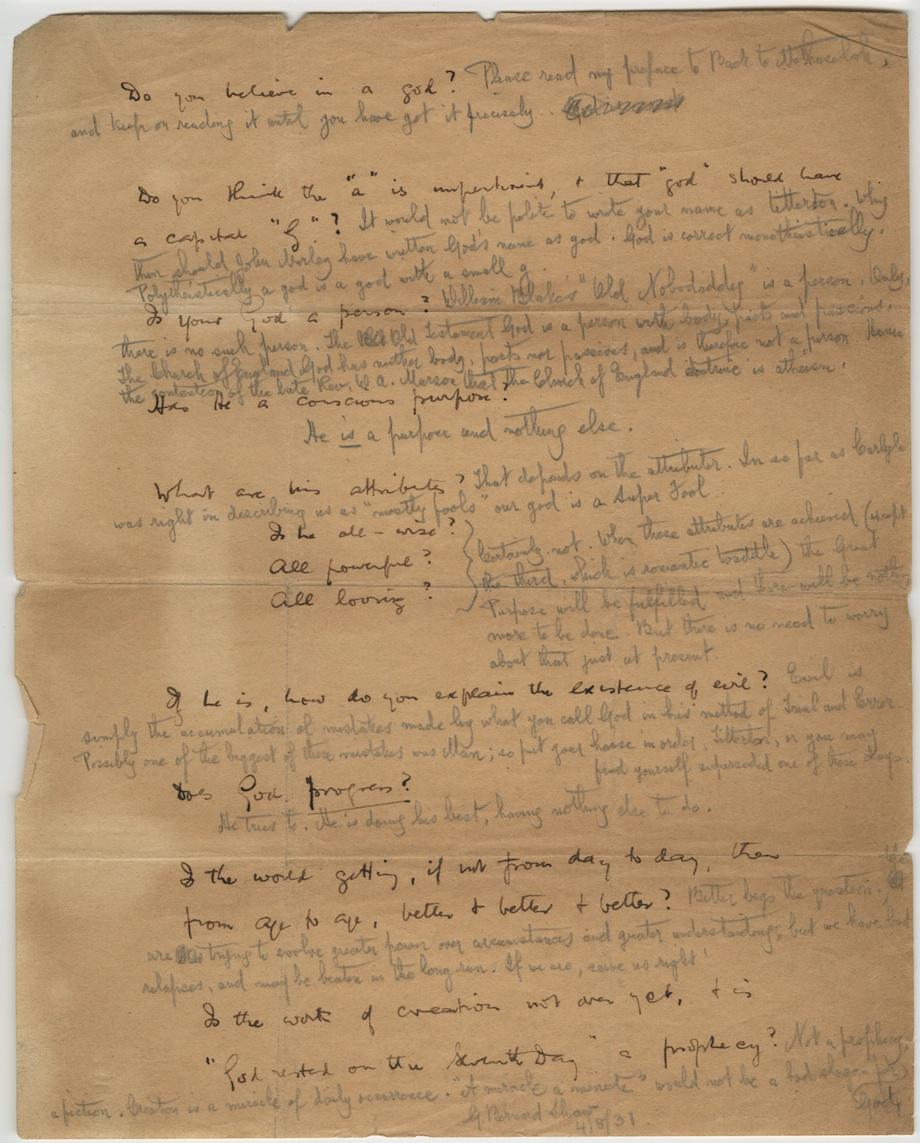 Do you believe in a god? Please read my preface to Back to Methuselah,
and keep on reading it until you have got it precisely.
Do you think the "a" is important, & that "god" should have
a capital "G"? It would not be polite to write your name as titterton. Why
then should John Morley have written God's name as god. God is correct monotheistically.
Polytheistically a god is a god with a small g.
Is your God a person? William Blake's "Old Nobodaddy" is a person. Only,
there is no such person. The Old Testament God is a person with body, parts and passions.
The Church of England God has neither body, parts nor passions, and is therefore not a person. Hence
the contention of the late Rev. W. A. Morson that the Church of England doctrine is atheism.
Has He a conscious purpose?
He is a purpose and nothing else.
What are his attributes? That depends on the attributer. In so far as Carlyle
was right in describing us as "mostly fools" our god is a Super Fool
Is he all-wise?
All powerful?
All loving?
Certainly not. When these attributes are achieved (except
the third, which is romantic twaddle) the Great
Purpose will be fulfilled and there will be noth
more to be done. But there is no need to worry
about that just at present.
If he is, how do you explain the existence of evil? Evil is
simply the accumulation of mistakes made by what you call God in his method of Trial and Error.
Possibly one of the biggest of those mistakes was Man; so put your house in order, Titterton, or you may
find yourself superseded one of those days.
Does God progress?
He tries to. He is doing his best, having nothing else to do.
Is the world getting, if not from day to day, then
from age to age, better & better & better? Better begs the question. We
are trying to evolve greater power over circumstances and greater understanding; but we have bad
relapses, and may be beaten in the long run. If we are, serve us right!
Is the work of creation not over yet, & is
"God rested on the Seventh Day" a prophecy? Not a prophecy,
a fiction. Creation is a miracle of daily occurrence. "A miracle a minute" would not be a bad slogan for
God.
G. Bernard Shaw
4/8/31.